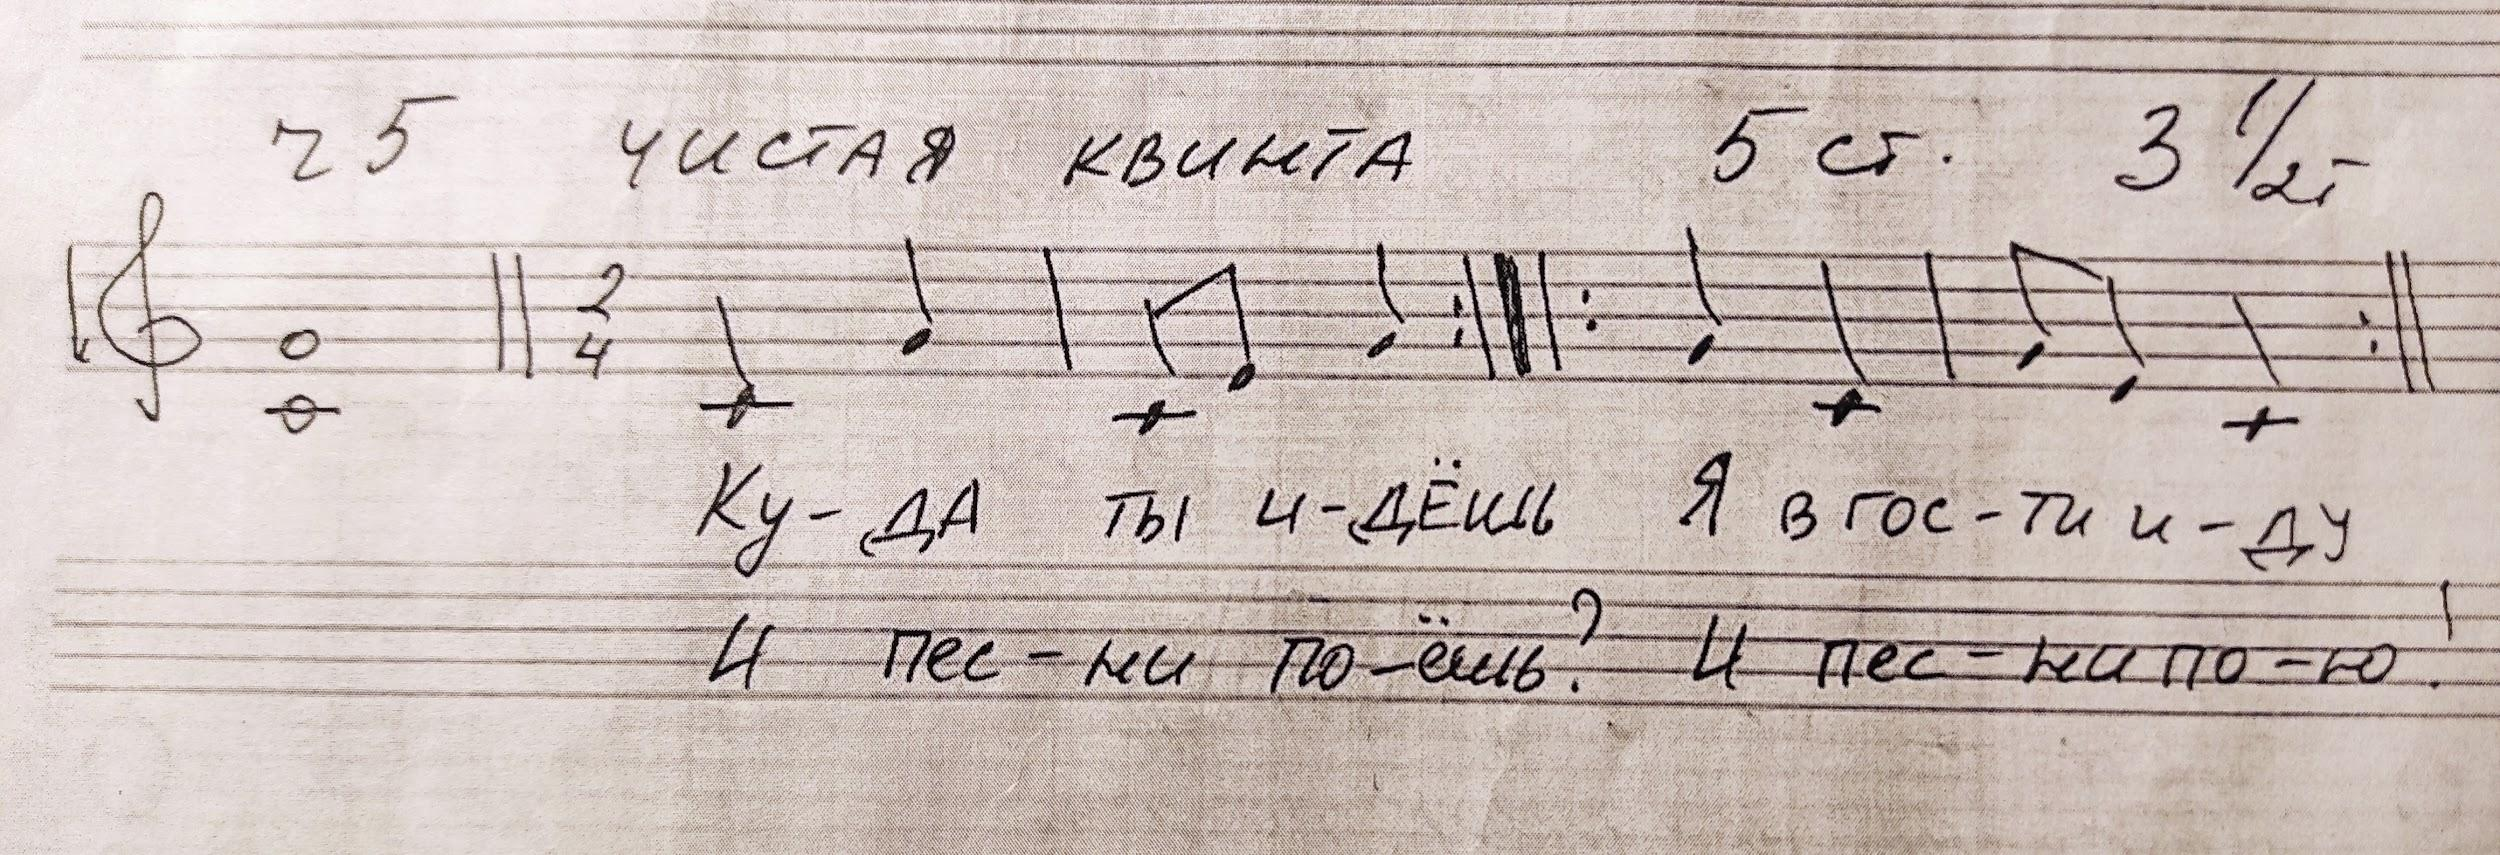 ч5 чистая квинта 5 ст. 3 1/2т
2
4
Ку-да ты и-дёшь Я в гос-ти и-ду
И пес-ни по-ёшь? И пес-ни по-ю!